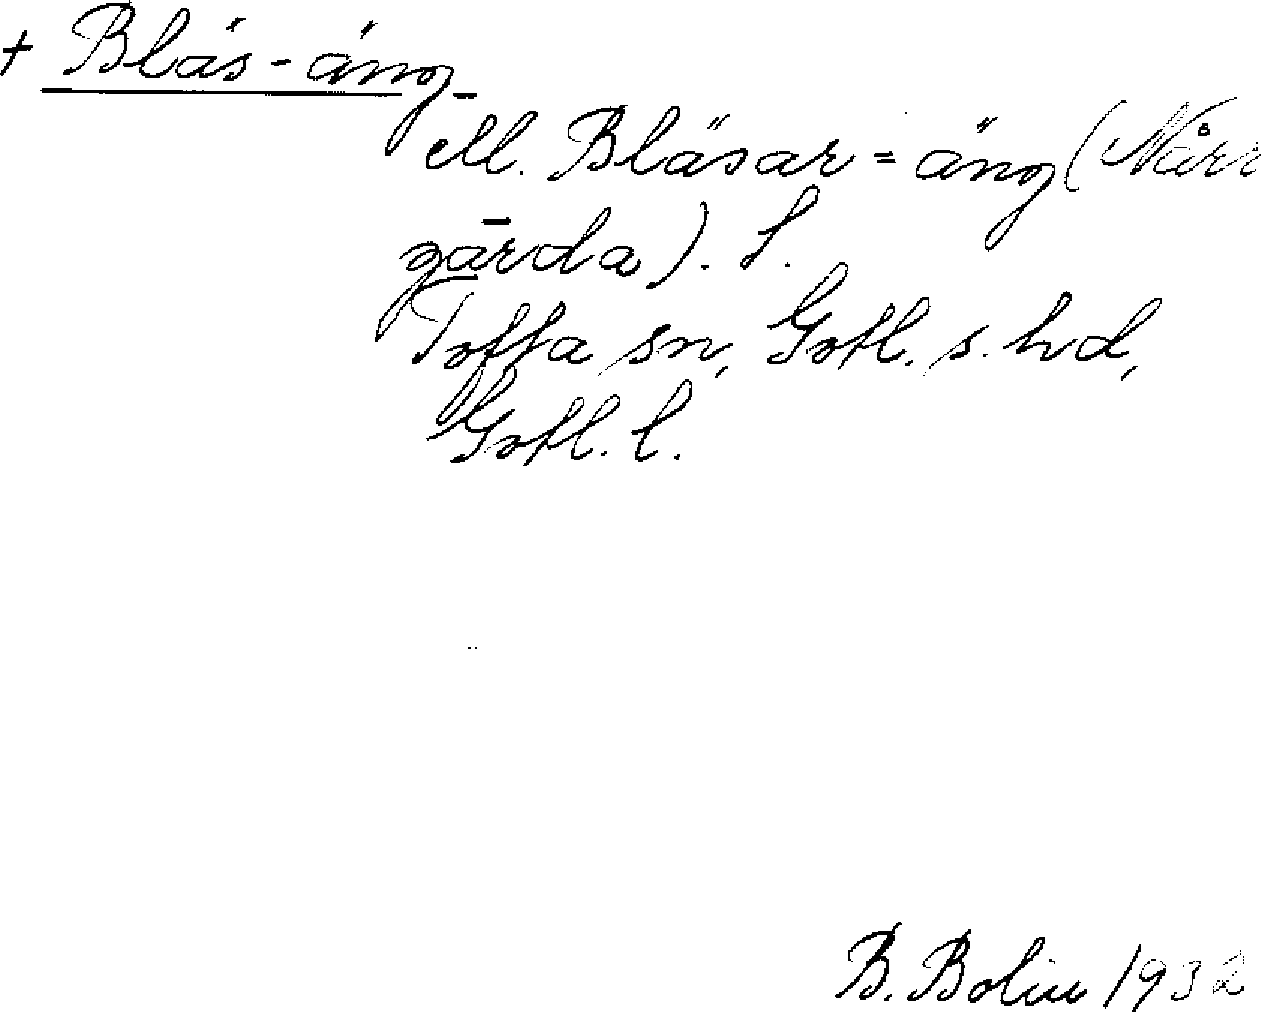 + Bläs-äng
ell. Bläsar=äng (Når
gårda). S.
Tofta sn, Gotl. s. hd,
Gotl. l.
B. Bolin 1932